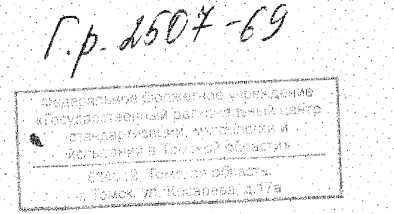 Г.р. 2507-69
Федеральное бюджетное учреждение
«Государственный региональный центр
стандартизации, метрологии и
испытаний в Томской области»
Томская область,
г. Томск, ул. Косарева, д.17а